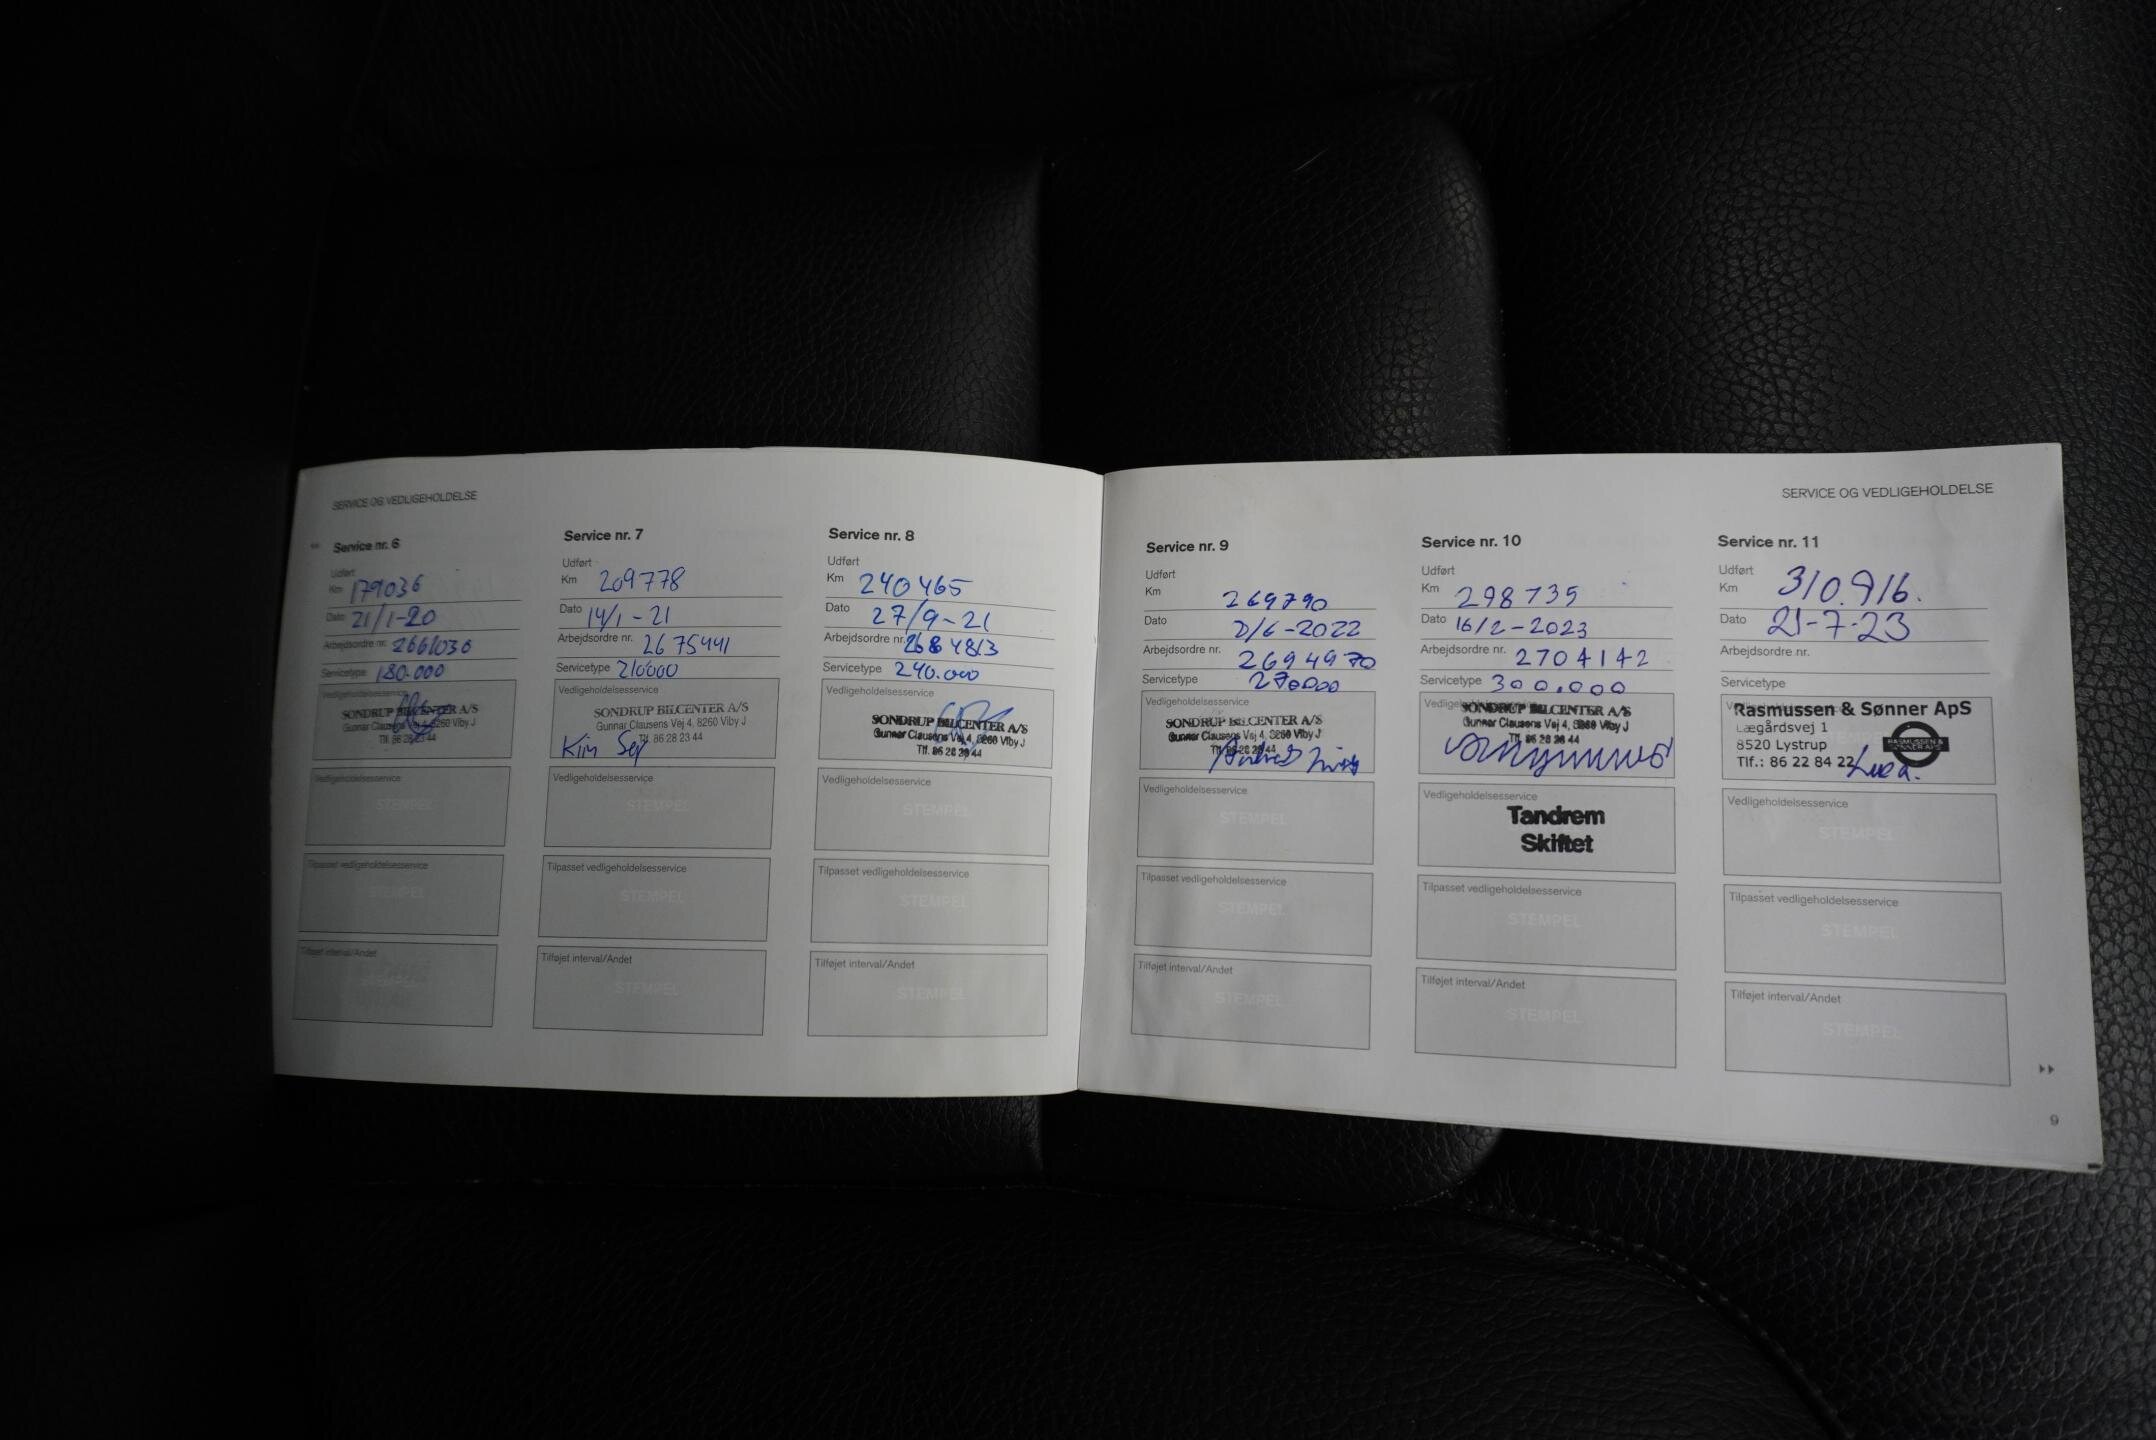 SERVICE OG VEDLIGEHOLDELSE
Service nr. 6
Udført
Km 179036
Dato 21/1-20
Arbejdsordre nr. 2661036
Servicetype 180.000
Vedligeholdelsesservice
SONDRUP BILCENTER A/S
Gunnar Clausens Vej 4, 8260 Viby J
Tlf. 86 28 23 44
Vedligeholdelsesservice
STEMPEL
Tilpasset vedligeholdelsesservice
STEMPEL
Tilføjet interval/Andet
STEMPEL
Service nr. 7
Udført
Km 209778
Dato 14/1-21
Arbejdsordre nr. 2675441
Servicetype 210000
Vedligeholdelsesservice
SONDRUP BILCENTER A/S
Gunnar Clausens Vej 4, 8260 Viby J
Tlf. 86 28 23 44
Kim
Vedligeholdelsesservice
STEMPEL
Tilpasset vedligeholdelsesservice
STEMPEL
Tilføjet interval/Andet
STEMPEL
Service nr. 8
Udført
Km 240465
Dato 27/9-21
Arbejdsordre nr. 2684813
Servicetype 240.000
Vedligeholdelsesservice
SONDRUP BILCENTER A/S
Gunnar Clausens Vej 4, 8260 Viby J
Tlf. 86 28 23 44
Vedligeholdelsesservice
STEMPEL
Tilpasset vedligeholdelsesservice
STEMPEL
Tilføjet interval/Andet
STEMPEL
SERVICE OG VEDLIGEHOLDELSE
Service nr. 9
Udført
Km 269790
Dato 2/6-2022
Arbejdsordre nr. 2694970
Servicetype 270000
Vedligeholdelsesservice
SONDRUP BILCENTER A/S
Gunnar Clausens Vej 4, 8260 Viby J
Tlf. 86 28 23 44
Vedligeholdelsesservice
STEMPEL
Tilpasset vedligeholdelsesservice
STEMPEL
Tilføjet interval/Andet
STEMPEL
Service nr. 10
Udført
Km 298739
Dato 16/2-2023
Arbejdsordre nr. 2704142
Servicetype 300.000
Vedligeholdelsesservice
SONDRUP BILCENTER A/S
Gunnar Clausens Vej 4, 8260 Viby J
Tlf. 86 28 23 44
Vedligeholdelsesservice
Tandrem
Skiftet
Tilpasset vedligeholdelsesservice
STEMPEL
Tilføjet interval/Andet
STEMPEL
Service nr. 11
Udført
Km 310.916.
Dato 21-7-23
Arbejdsordre nr.
Servicetype
Rasmussen & Sønner ApS
Lægårdsvej 1
8520 Lystrup
Tlf.: 86 22 84 22
RASMUSSEN &
SØNNER APS
Vedligeholdelsesservice
STEMPEL
Tilpasset vedligeholdelsesservice
STEMPEL
Tilføjet interval/Andet
STEMPEL
9